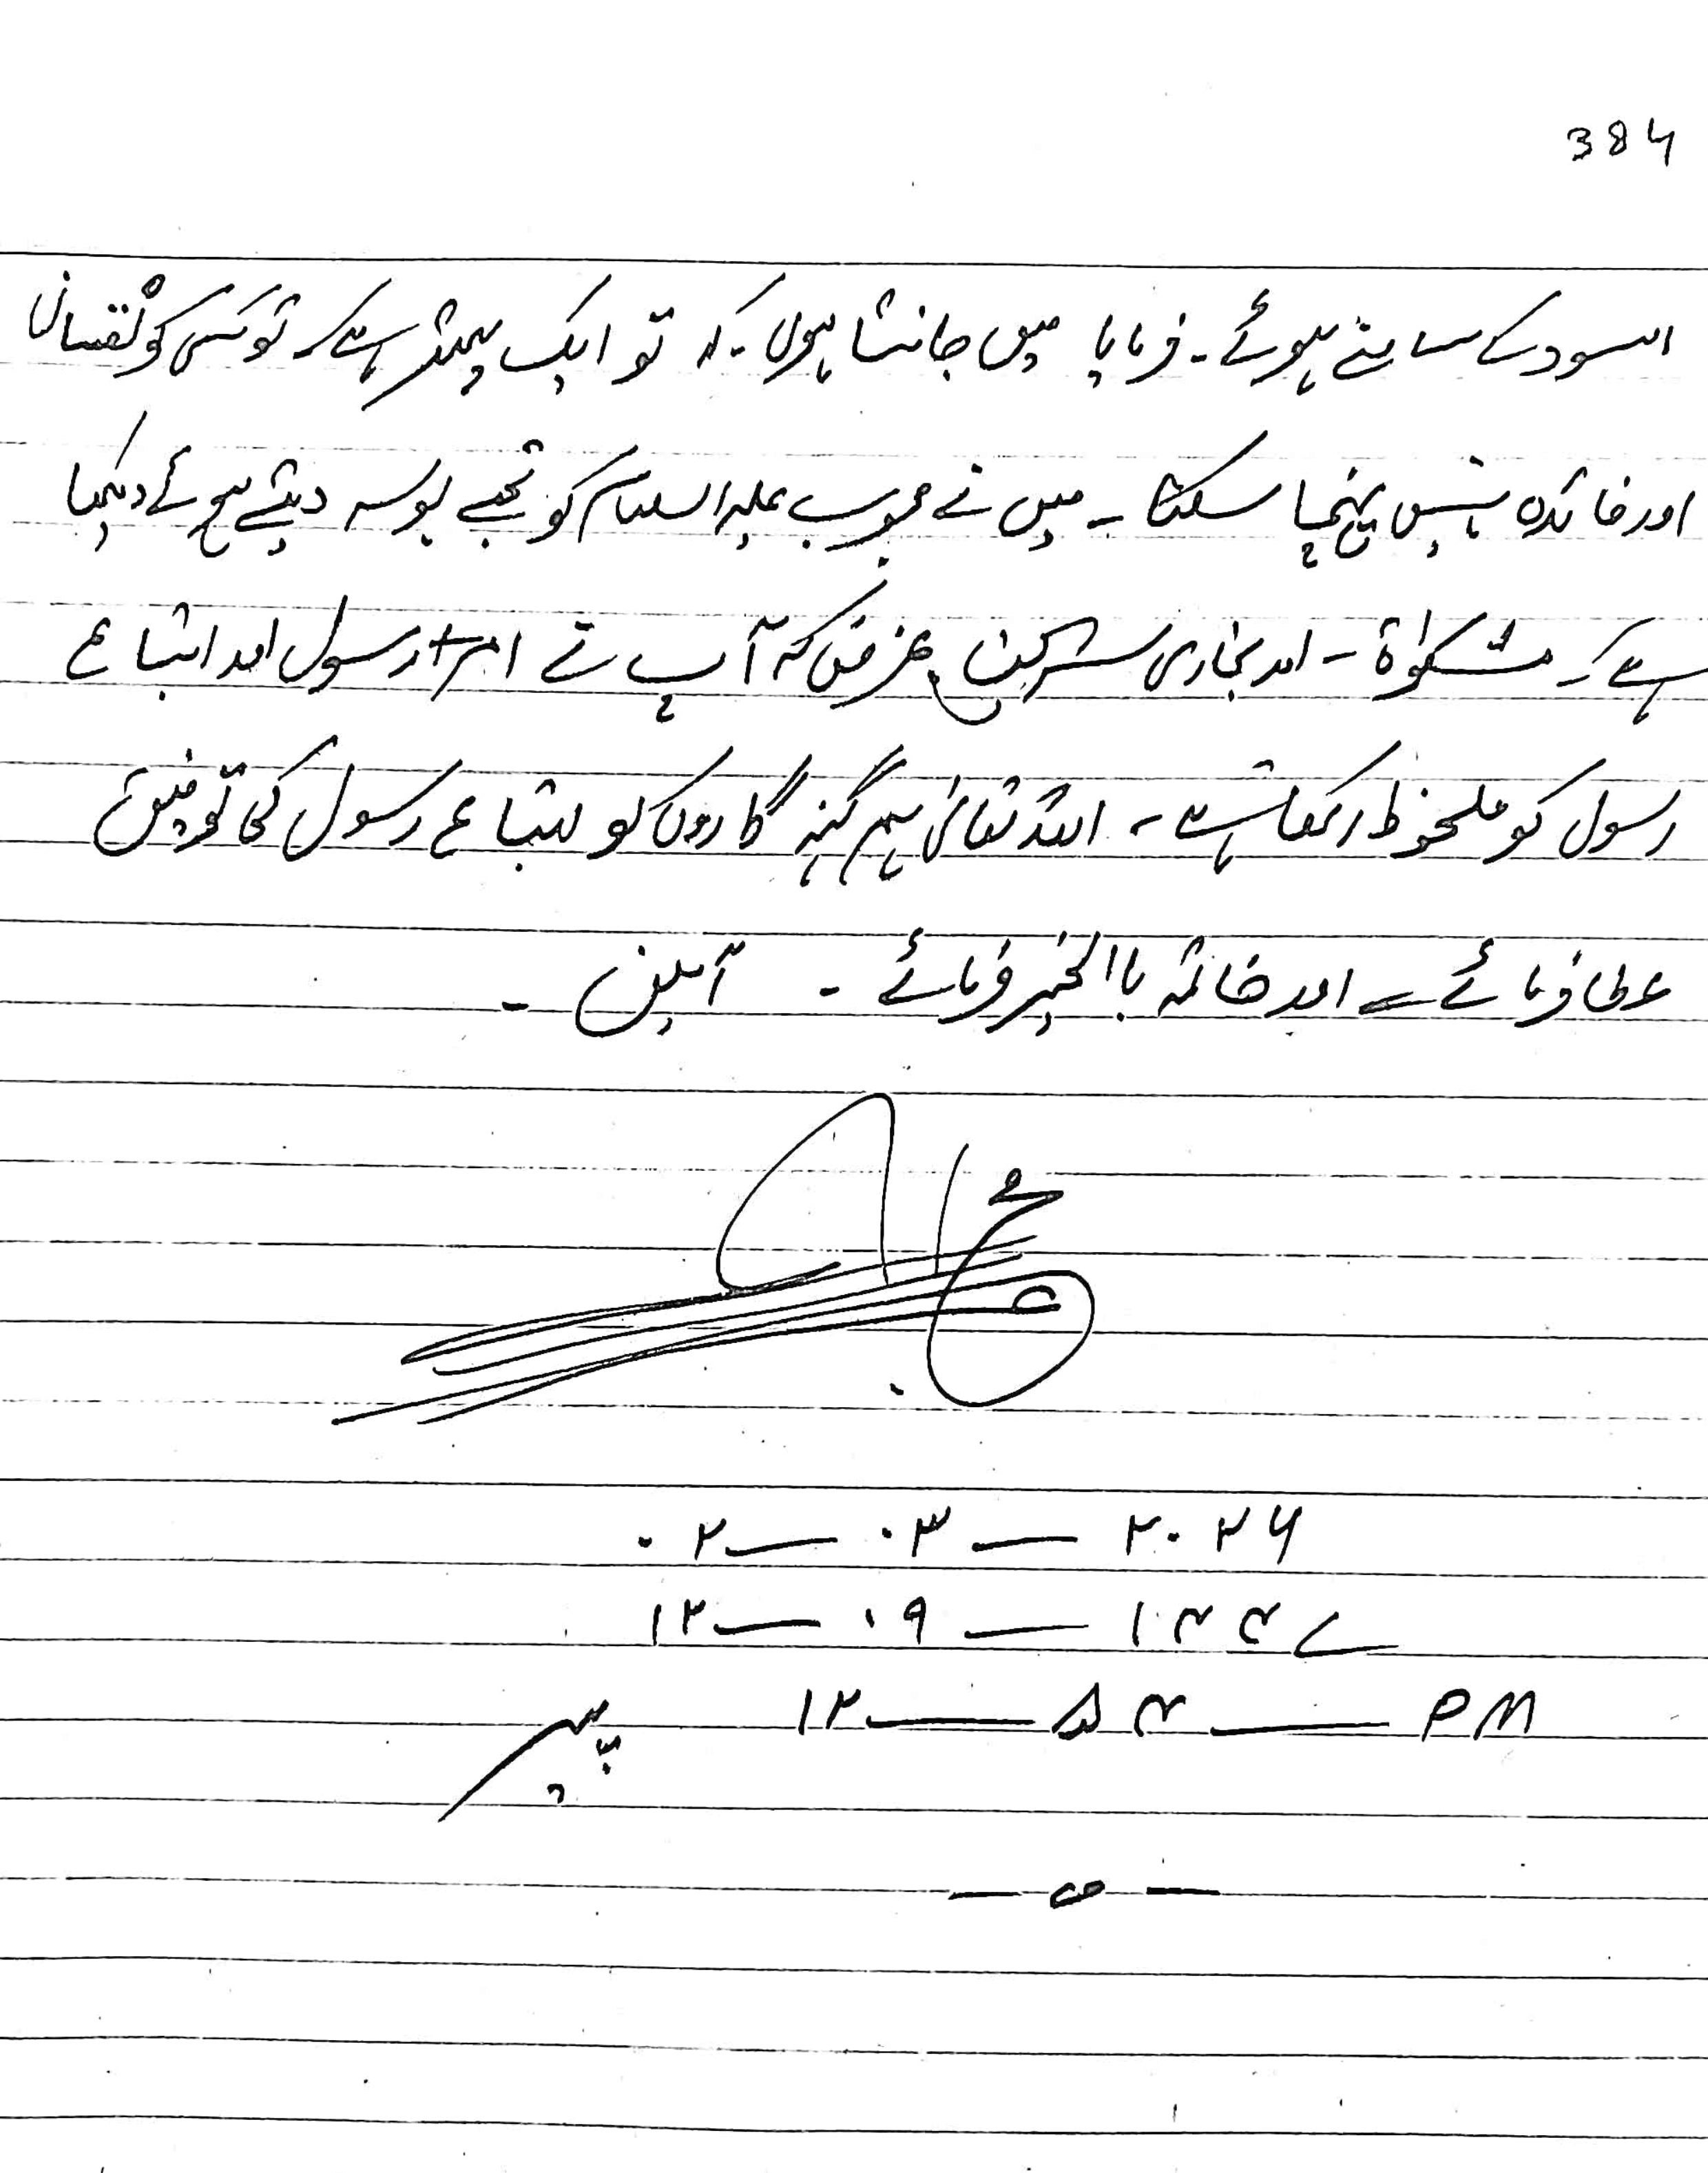 384
اسود کے سامنے ہوئے۔ فرمایا میں جانتا ہوں۔ کہ تو ایک پتھر ہے۔ تو کسی کو نقصان
اور فائدہ نہیں پہنچا سکتا۔ میں نے محبوب علیہ السلام کو تجھے بوسہ دیتے ہوئے دیکھا
ہے۔ مشکواۃ۔ اور بخاری شریف۔ غرض کہ آپ نے رسول اور اتباع
رسول کو ملحوظ رکھا ہے۔ اللہ تعالیٰ ہم گنہگاروں کو اتباع رسول کی توفیق
عطا فرمائے اور خاتمہ باالخیر فرمائے۔ آمین۔
۰۲ — ۰۳ — ۲۰۲۶
۱۲ — ۰۹ — ۱۴۴۷
۱۲ — ۵۴ — PM پیر